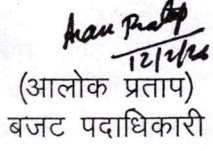 12/2/26
(आलोक प्रताप)
बजट पदाधिकारी